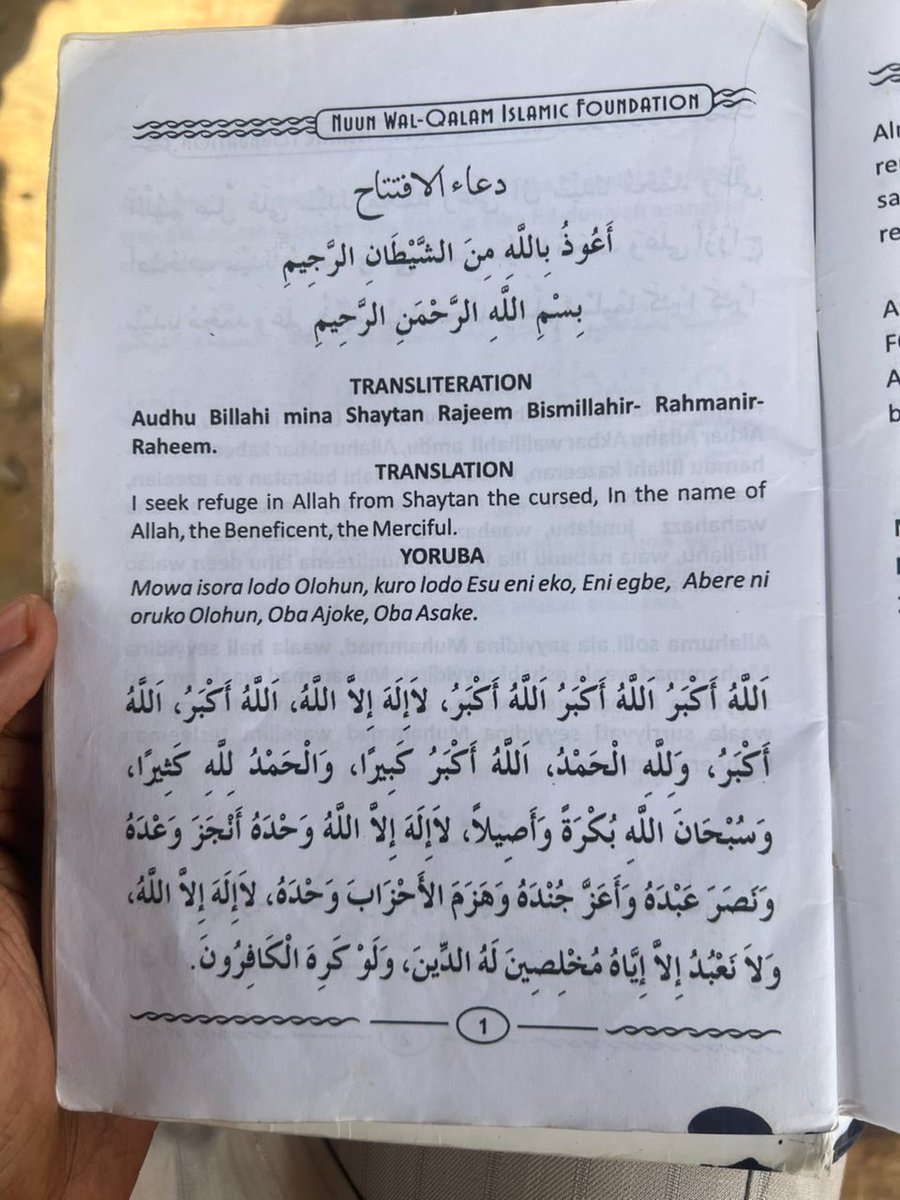 NUUN WAL-QALAM ISLAMIC FOUNDATION
دعاء الافتتاح
أَعُوذُ بِاللَّهِ مِنَ الشَّيْطَانِ الرَّجِيمِ
بِسْمِ اللَّهِ الرَّحْمَنِ الرَّحِيمِ
TRANSLITERATION
Audhu Billahi mina Shaytan Rajeem Bismillahir- Rahmanir-
Raheem.
TRANSLATION
I seek refuge in Allah from Shaytan the cursed, In the name of
Allah, the Beneficent, the Merciful.
YORUBA
Mowa isora lodo Olohun, kuro lodo Esu eni eko, Eni egbe, Abere ni
oruko Olohun, Oba Ajoke, Oba Asake.
اَللَّهُ أَكْبَرُ اللَّهُ أَكْبَرُ اللَّهُ أَكْبَرُ، لاإلَهَ إِلاَّ اللَّهُ، اللَّهُ أَكْبَرُ، اللَّهُ
أَكْبَرُ، وَلِلَّهِ الْحَمْدُ، اَللَّهُ أَكْبَرُ كَبِيرًا، وَالْحَمْدُ لِلَّهِ كَثِيرًا،
وَسُبْحَانَ اللَّهِ بُكْرَةً وَأَصِيلاً، لاَإِلَهَ إِلاَّ اللَّهُ وَحْدَهُ أَنْجَزَ وَعْدَهُ
وَنَصَرَ عَبْدَهُ وَأَعَزَّ جُنْدَهُ وَهَزَمَ الأَحْزَابَ وَحْدَهُ، لاَإِلَهَ إِلاَّ اللَّهُ،
وَلاَ نَعْبُدُ إِلاَّ إِيَّاهُ مُخْلِصِينَ لَهُ الدِّينَ، وَلَوْ كَرِهَ الْكَافِرُونَ.
1